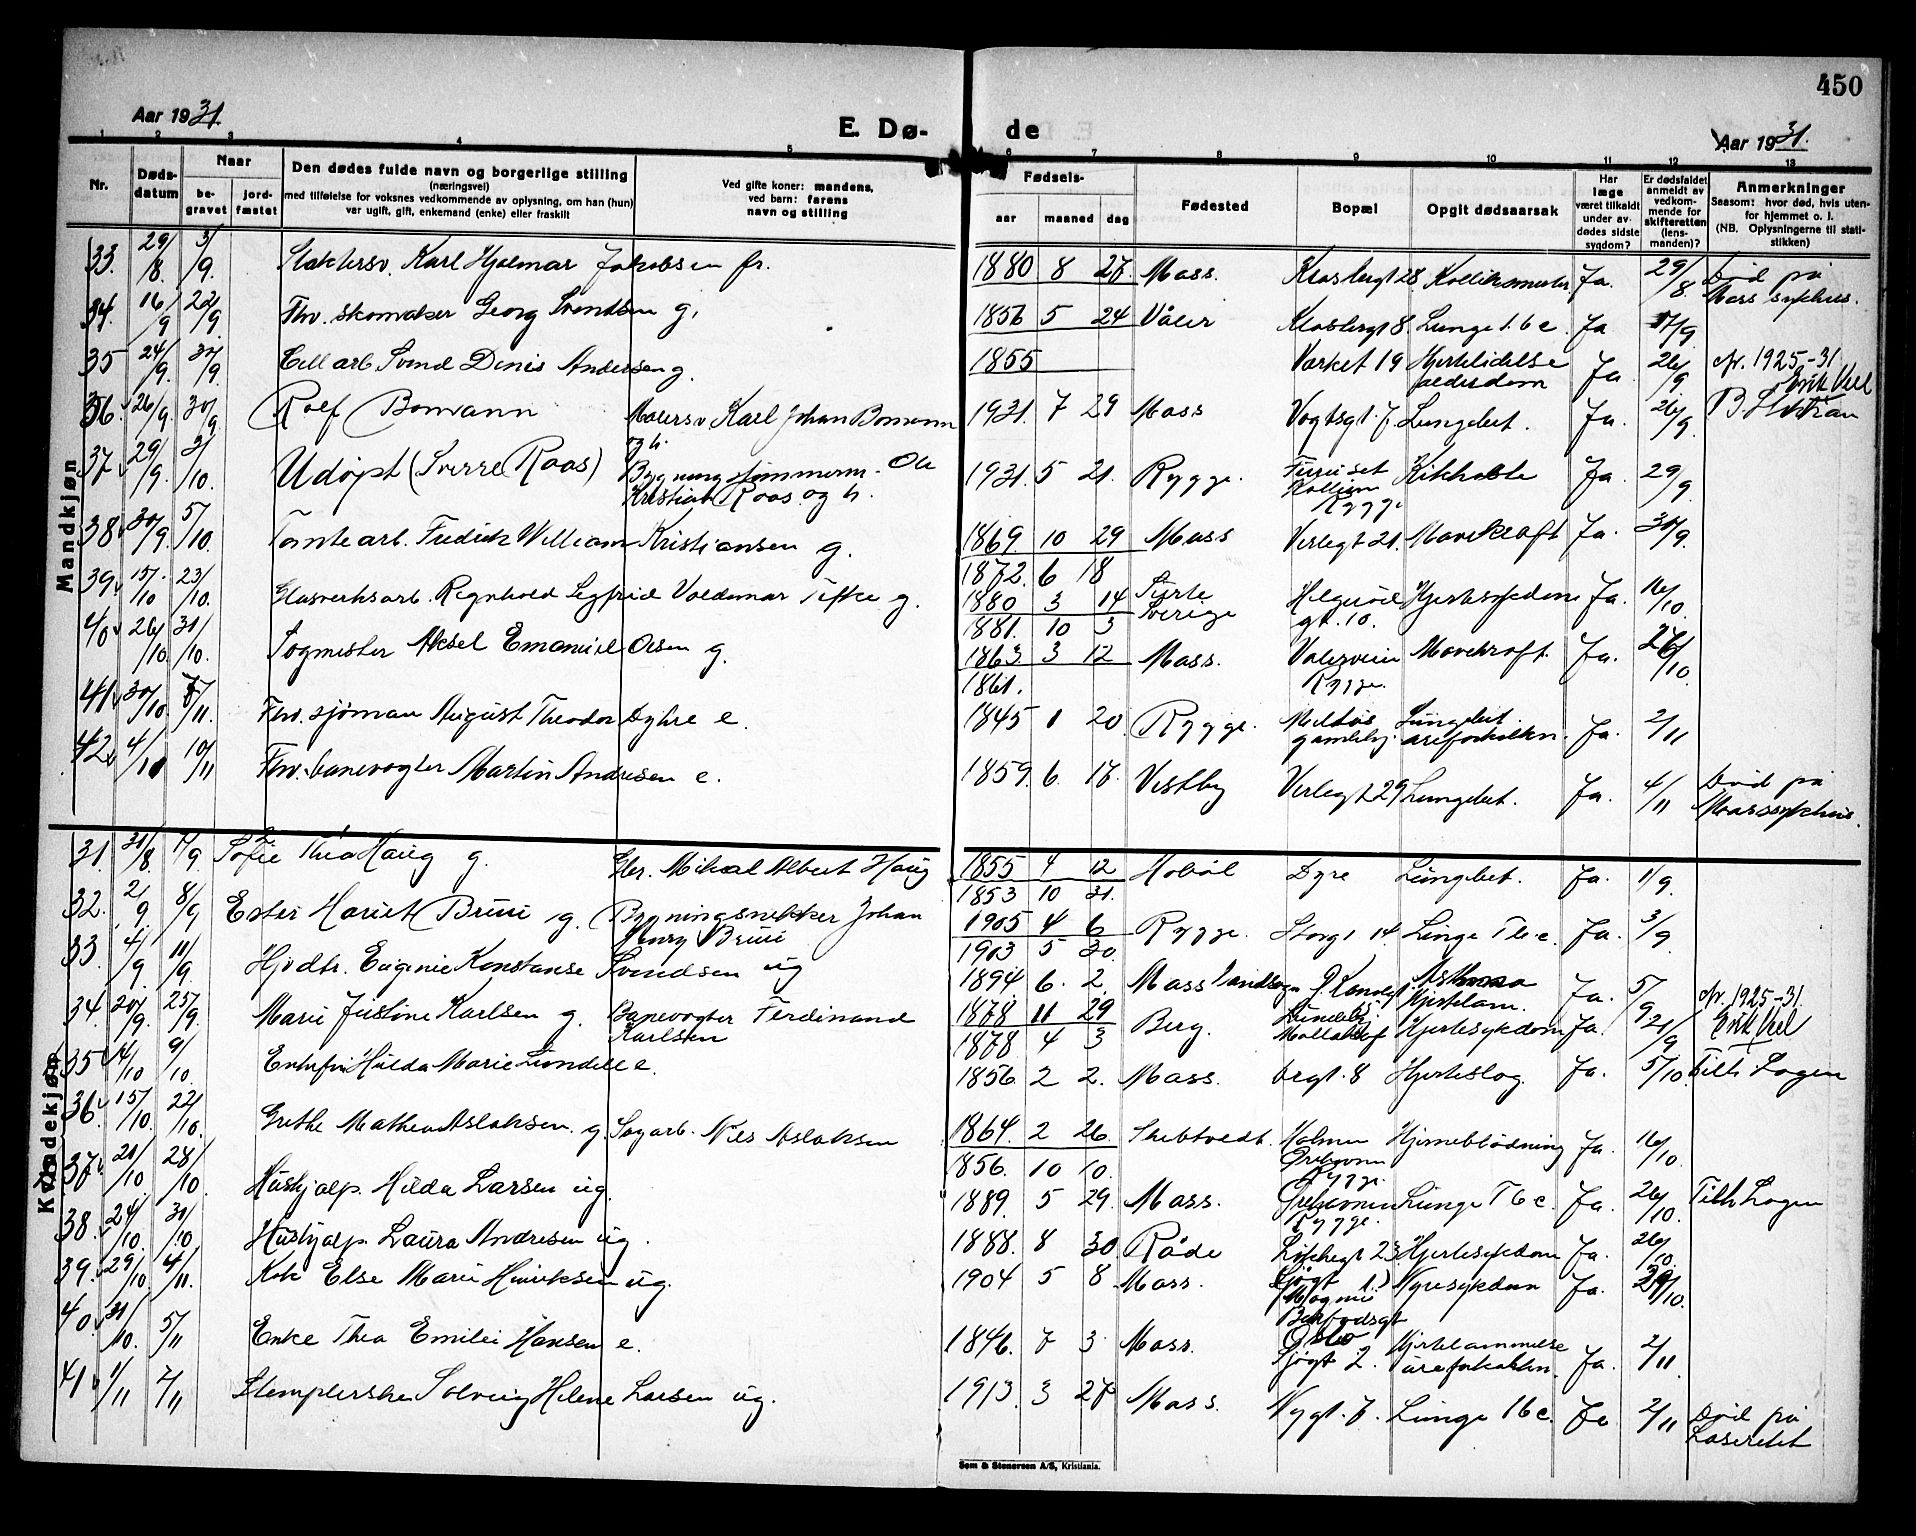 450
Aar 1931.
E. Dø- de
Aar 1931.
1 2 3 4 5 6 7 8 9 10 11 12 13
Nr.
Døds-
datum
Naar
be-
gravet
jord-
fæstet
Den dødes fulde navn og borgerlige stilling
(næringsvei)
med tilføielse for voksnes vedkommende av oplysning, om han (hun)
var ugift, gift, enkemand (enke) eller fraskilt
Ved gifte koner: mandens,
ved barn: farens
navn og stilling
Fødsels-
aar maaned dag
Fødested
Bopæl
Opgit dødsaarsak
Har
læge
været tilkaldt
under av-
dødes sidste
sygdom?
Er dødsfaldet
anmeldt av
vedkom-
mende for
skifteretten
(lens-
manden)?
Anmerkninger
Saasom: hvor død, hvis uten-
for hjemmet o. l.
(NB. Oplysningerne til stati-
stikken)
Mandkjøn
33. 29/8. 3/9. Slaktersv. Karl Hjalmar Jakobsen fr. 1880 8 27. Moss. 28. Ja. 29/8. Død på
Moss sykhus.
34. 16/9 22/9 Fhv. skomaker Georg Svendsen g. 1856 5 24 Våler 8. Lunge tbc Ja 17/9
35 24/9. 30/9. Cell arb. Svend Denis Andersen g. 1855 Værket 19 Hjertelidelse
alderdom Ja. 26/9 Av. 1925-31
36. 26/9. 30/9. Rolf Bomann Malersv Karl Johan Bomann
og h. 1931. 7 29 Moss Vogtsgt. 7. Lungebet. Ja. 26/9.
37 29/9. 3/10. Udøpt (Sverre Roos) Bygningstømmerm. Ole
Kristian Roos og h. 1931. 5 21. Rygge. Rygge Kikhoste Ja. 29/9
38 30/9. 5/10. Tomtearb. Fredrik William Kristiansen g. 1869. 10 29 Moss Verlegt 21. Mavekræft Ja. 30/9.
1872. 6 18
39. 15/10 23/10. Glasverksarb. Reinhold Segfrid Valdemar Tifke g. 1880 3 14 Sverige Helgerød
gt. 10. Hjertesykdom Ja. 16/10.
1881. 10 3
40 26/10. 31/10. Togmester Aksel Emanuel Olsen g. 1863. 3 12 Moss. Vålerveien
Rygge. Mavekræft. Ja. 27/10
1861.
41. 30/10. 5/11. Fhv. sjøman August Theodor Dyhre e. 1845 1 20. Rygge. Melløs
gamlehj. Lungebet.
åreforkalkn. Ja. 2/11
42. 4/11 10/11 Fhv. banevogter Martin Andresen e. 1859. 6. 17. Vestby Verlegt 29 Lungebet. Ja. 4/11 Død på
Moss sykhus.
Kvindekjøn
31. 31/8. 7/9. Sofie Thea Haug g. Mikal Albert Haug 1855 4 12 Hobøl Dyre Lungebet. Ja. 1/9.
1853 10 31.
32. 2/9 8/9 Ester Hariet Bruu g. Bygningssnekker Johan
Henry Bruu 1905 4 6 Rygge. Storgt 14 Lunge Tbc. Ja. 3/9
1903 5 30.
33. 4/9. 11/9 Hjvdtr. Eugenie Konstanse Svendsen ug 1894 6. 2. Moss landsogn Asthma
Hjertelam. Ja. 5/9
34. 20/9. 25/9. Marie Justine Karlsen g. Banevogter Ferdinand
Karlsen 1878. 11 29 Berg. Hjertesykdom Ja. 21/9 Av. 1925-31.
1878 4 3
35 4/10 9/10 Enkefru Hulda Marie Lundell e. 1856. 2 2. Moss. 8 Hjerteslag. Ja. 5/10
36. 15/10. 22/10. Grethe Mathea Aslaksen. g. Sagarb. Nils Aslaksen 1864. 2 26. Skibtvedt. Holmen
Rygge. Hjerneblødning Ja. 16/10.
1856. 10 10.
37. 21/10 28/10. Hushjelp. Hilda Larsen ug. 1889. 5 29. Moss.
Rygge. Lunge Tbc Ja. 26/10.
38. 24/10. 30/10 Hushjelp. Laura Andresen ug. 1888. 8 30 Råde 23. Hjertesykdom Ja. 26/10.
39. 29/10 4/11. Kok Else Marie Henriksen ug. 1904 5 8 Moss. Oslo Nyresykdom Ja. 29/10.
40. 31/10. 5/11 Enke Thea Emilie Hansen e. 1846. 7 3. Moss. Sjøgt 2. Hjertelammelse
åreforkalkn. Ja. 2/11.
41 1/11 7/11 Stemplerske Solveig Helene Larsen ug. 1913. 3 27 Moss. Nygt. 7. Lunge Tbc. Ja 2/11 Død på
Lasarettet
Søm & Stenersen A/S, Kristiania.